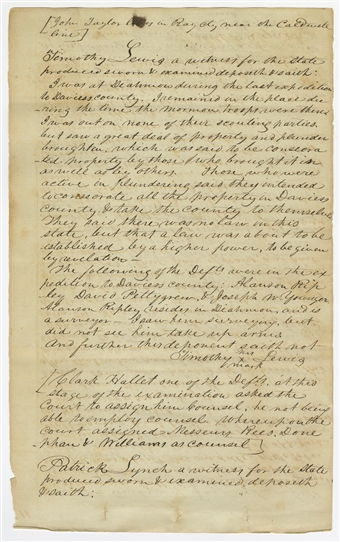 [John Taylor lives in Ray cty near the Caldwell
line]
Timothy Lewis a witness for the State
produced sworn & examined deposeth & saith:
I was at Diahmon during the last expedition
to Daviess county. I remained in the place du-
ring the time the mormon troops were there.
I was out on none of their scouting parties
but saw a great deal of property and plunder
brought in, which was said to be consecra
ted property by those who brought it in
as well as by others. Those who were
active in plundering said they intended
to consecrate all the property in Daviess
County & take the county to themselves
They said there was no law in this
state, but that a law was about to be
established by a higher power, to be given
by revelation—
The following of the Defts were in the ex
pedition to Daviess county: Alanson Rip
ley David Pettygrew, & Joseph W Younger
Alanson Ripley resides in Diahmon, and is
a surveyor I saw him surveying, but
did not see him take up arms
And further this deponent saith not
Timothy his x mark Lewis
[Clark Hallet one of the Defts, at this
stage of the examination asked the
Court to assign him Counsel, he not being
able to employ counsel whereupon the
court assigned Messeurs Rees, Done
phan & Williams as counsel]
Patrick Lynch a witness for the State
produced, sworn & examined, deposeth
& saith: